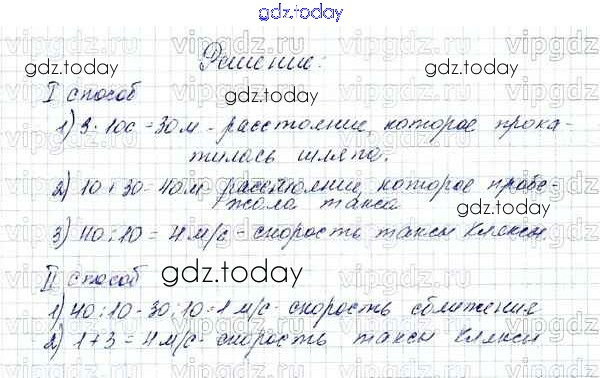 gdz.today
Решение:
I способ
1) 3 · 10с = 30м - расстояние, которое прока-
тилась шляпа.
2) 10 + 30 = 40м - расстояние, которое пробе-
жала такса
3) 40 : 10 = 4 м/с - скорость таксы Кляксы.
II способ
1) 40 : 10 - 30 : 10 = 1 м/с - скорость сближения
2) 1 + 3 = 4 м/с - скорость таксы Кляксы
gdz.today
gdz.today
gdz.today
gdz.today
gdz.today
gdz.today
gdz.today